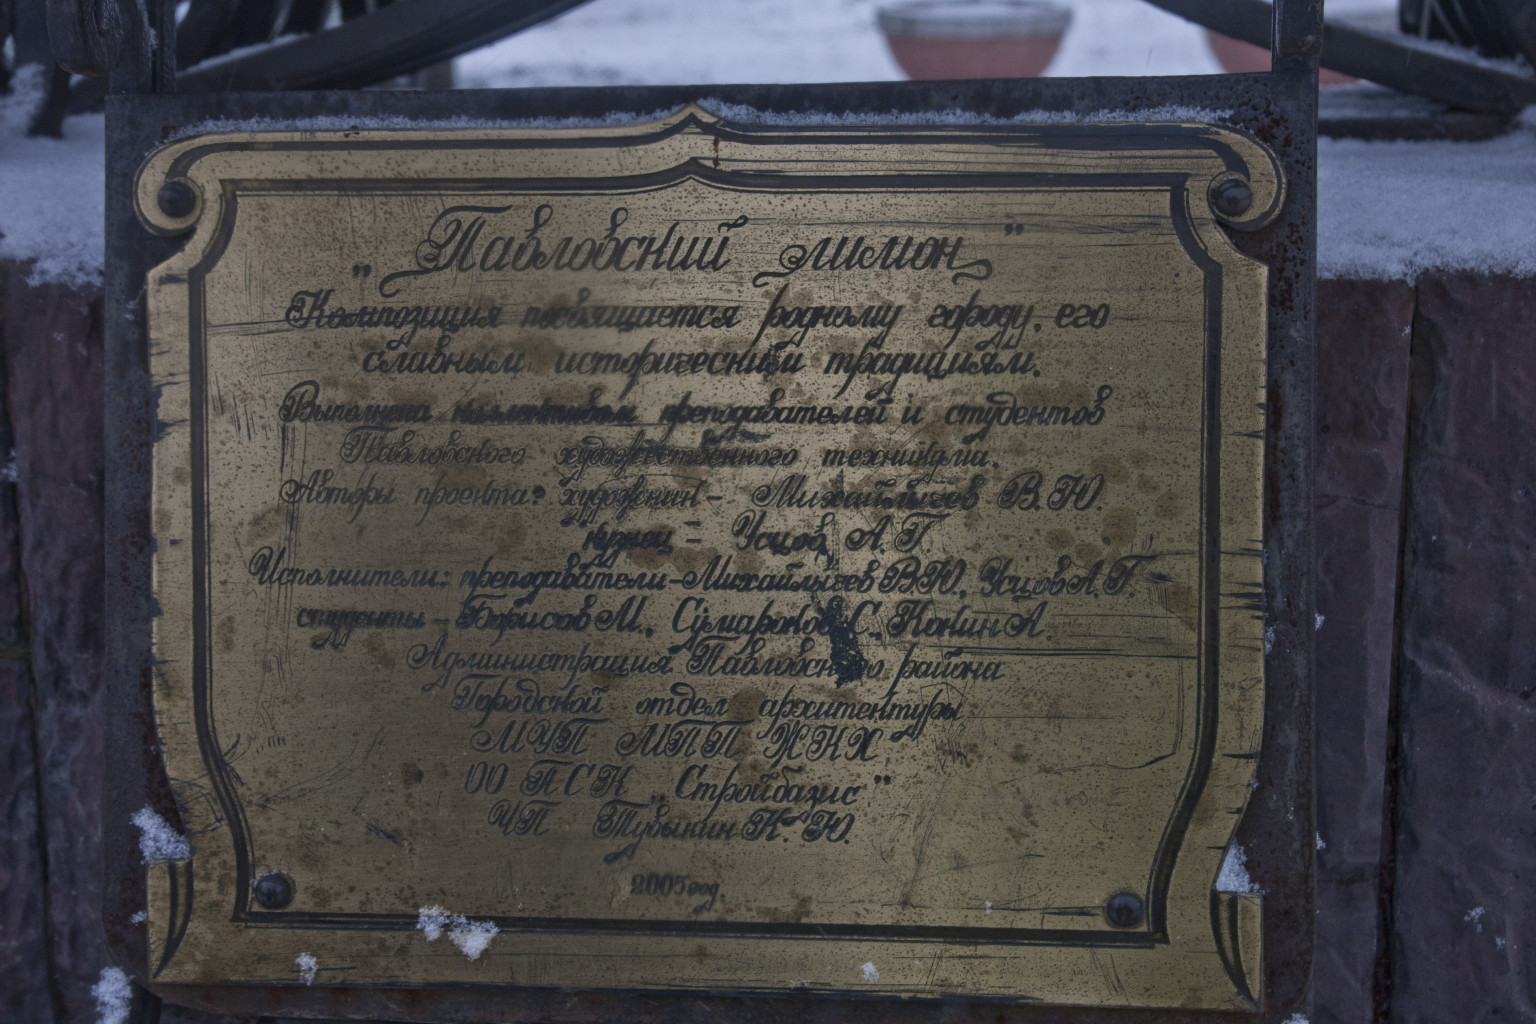 „Павловский лимон"
Композиция посвящается родному городу, его
славным историческим традициям.
Выполнена коллективом преподавателей и студентов
Павловского художественного техникума.
Авторы проекта: художник - Михайлычев В.Ю.
кузнец - Усцов А.Г
Исполнители: преподаватели-Михайлычев В.Ю., Усцов А.Г.
студенты - Борисов М., Сумароков С., Конин А.
Администрация Павловского района
Городской отдел архитектуры
МУП МПП ЖКХ
ОО ПСК „Стройбазис"
ЧП Тубыкин К.Ю.
2005 год